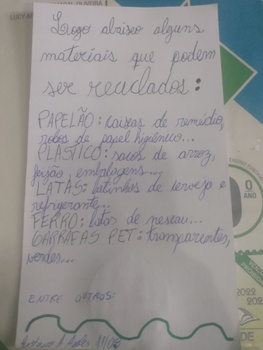 Logo abaixo alguns
materiais que podem
ser reaclados:
PAPELÃO: caixas de remédio,
rolos de papel higiênico...
PLASTICO: sacos de arroz,
feijão, embalagens...
LATAS: latinhas de cerveja e
refrigerante...
FERRO: latas de nescau...
GARRAFAS PET: transparentes,
verdes...
ENTRE OUTROS!